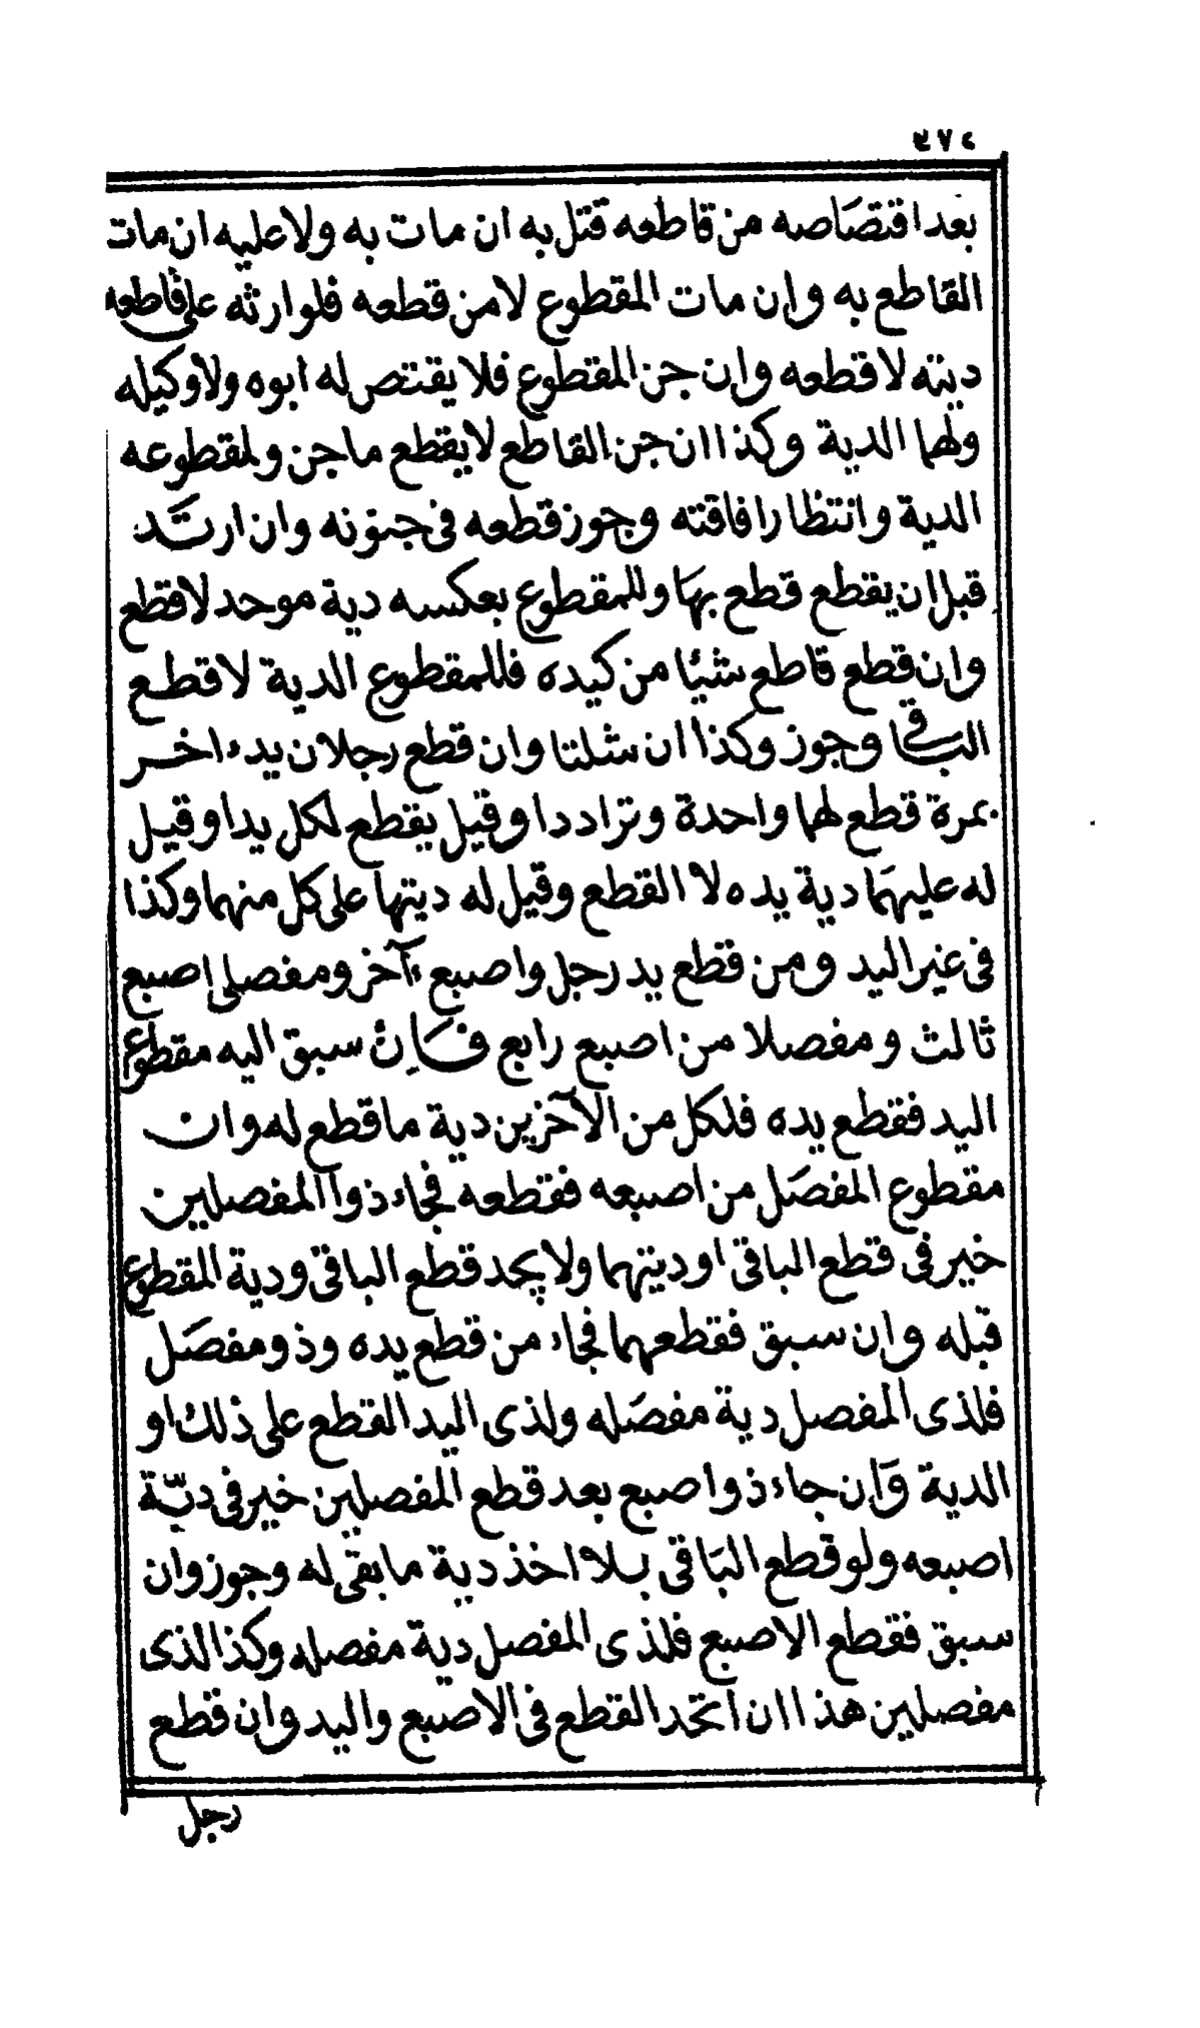 ٣٧٤
بعد اقتصاصه من قاطعه قتل به ان مات به ولا عليه ان مات
القاطع به وإن مات المقطوع لا من قطعه فلوارثه على قاطعه
ديته لا قطعه وان جن المقطوع فلا يقتص له أبوه ولا وكيله
ولهما الدية وكذا ان جن القاطع لا يقطع ما جن ولمقطوعه
الدية وانتظار افاقته وجوز قطعه فى جنونه وان ارتد
قبل ان يقطع قطع بها وللمقطوع بعكسه دية موحد لا قطع
وان قطع قاطع شيئا من كيده فللمقطوع الدية لا قطع
الباقى وجوز وكذا ان شلتا وان قطع رجلان يدء اخر
بمرة قطع لهما واحدة وترادد او قيل يقطع لكل يدا وقيل
له عليهما دية يده لا القطع وقيل له ديتها على كل منهما وكذا
فى غير اليد ومن قطع يد رجل واصبع ءآخر ومفصلى إصبع
ثالث ومفصلا من اصبع رابع فإن سبق اليه مقطوع
اليد فقطع يده فلكل من الآخرين دية ما قطع له وان
مقطوع المفصل من اصبعه فقطعه فجاء ذوا المفصلين
خير فى قطع الباقى او ديتهما ولا يجد قطع الباقى ودية المقطوع
قبله وإن سبق فقطعهما فجاء من قطع يده وذو مفصل
فلذى المفصل دية مفصله ولذى اليد القطع على ذلك او
الدية وإن جاء ذوا صبع بعد قطع المفصلين خير فى ديّة
اصبعه ولو قطع الباقى بلا اخذ دية ما بقى له وجوز وان
سبق فقطع الاصبع فلذى المفصل دية مفصله وكذا لذى
مفصلين هذا ان اتحد القطع فى الاصبع واليد وان قطع
رجل